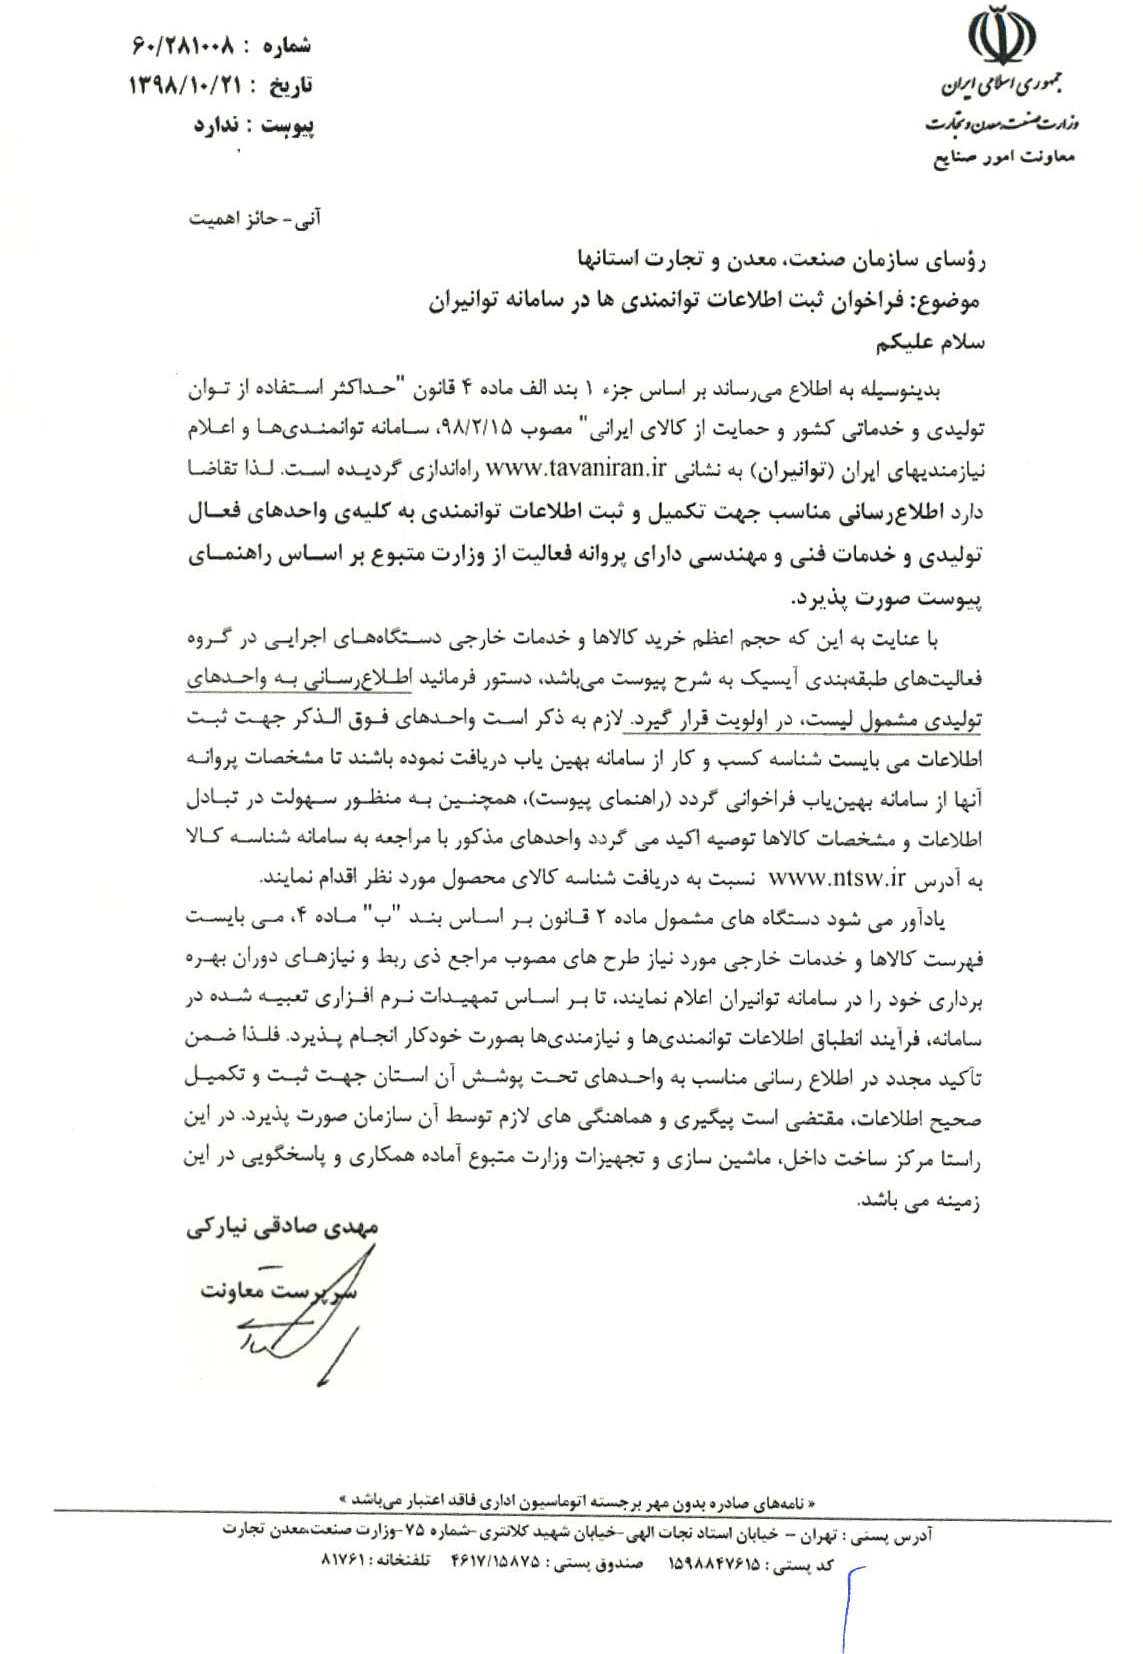 جمهوری اسلامی ایران
وزارت صنعت، معدن و تجارت
معاونت امور صنایع
شماره : ۶۰/۲۸۱۰۰۸
تاریخ : ۱۳۹۸/۱۰/۲۱
پیوست : ندارد
آنی- حائز اهمیت
رؤسای سازمان صنعت، معدن و تجارت استانها
موضوع: فراخوان ثبت اطلاعات توانمندی ها در سامانه توانیران
سلام علیکم
بدینوسیله به اطلاع می‌رساند بر اساس جزء ۱ بند الف ماده ۴ قانون "حداکثر استفاده از توان
تولیدی و خدماتی کشور و حمایت از کالای ایرانی" مصوب ۹۸/۲/۱۵، سامانه توانمندی‌ها و اعلام
نیازمندیهای ایران (توانیران) به نشانی www.tavaniran.ir راه‌اندازی گردیده است. لذا تقاضا
دارد اطلاع‌رسانی مناسب جهت تکمیل و ثبت اطلاعات توانمندی به کلیه‌ی واحدهای فعال
تولیدی و خدمات فنی و مهندسی دارای پروانه فعالیت از وزارت متبوع بر اساس راهنمای
پیوست صورت پذیرد.
با عنایت به این که حجم اعظم خرید کالاها و خدمات خارجی دستگاه‌های اجرایی در گروه
فعالیت‌های طبقه‌بندی آیسیک به شرح پیوست می‌باشد، دستور فرمائید اطلاع‌رسانی به واحدهای
تولیدی مشمول لیست، در اولویت قرار گیرد. لازم به ذکر است واحدهای فوق الذکر جهت ثبت
اطلاعات می بایست شناسه کسب و کار از سامانه بهین یاب دریافت نموده باشند تا مشخصات پروانه
آنها از سامانه بهین‌یاب فراخوانی گردد (راهنمای پیوست)، همچنین به منظور سهولت در تبادل
اطلاعات و مشخصات کالاها توصیه اکید می گردد واحدهای مذکور با مراجعه به سامانه شناسه کالا
به آدرس www.ntsw.ir نسبت به دریافت شناسه کالای محصول مورد نظر اقدام نمایند.
یادآور می شود دستگاه های مشمول ماده ۲ قانون بر اساس بند "ب" ماده ۴، می بایست
فهرست کالاها و خدمات خارجی مورد نیاز طرح های مصوب مراجع ذی ربط و نیازهای دوران بهره
برداری خود را در سامانه توانیران اعلام نمایند، تا بر اساس تمهیدات نرم افزاری تعبیه شده در
سامانه، فرآیند انطباق اطلاعات توانمندی‌ها و نیازمندی‌ها بصورت خودکار انجام پذیرد. فلذا ضمن
تأکید مجدد در اطلاع رسانی مناسب به واحدهای تحت پوشش آن استان جهت ثبت و تکمیل
صحیح اطلاعات، مقتضی است پیگیری و هماهنگی های لازم توسط آن سازمان صورت پذیرد. در این
راستا مرکز ساخت داخل، ماشین سازی و تجهیزات وزارت متبوع آماده همکاری و پاسخگویی در این
زمینه می باشد.
مهدی صادقی نیارکی
سرپرست معاونت
« نامه‌های صادره بدون مهر برجسته اتوماسیون اداری فاقد اعتبار می‌باشد »
آدرس پستی : تهران – خیابان استاد نجات الهی-خیابان شهید کلانتری-شماره ۷۵-وزارت صنعت،معدن تجارت
کد پستی : ۱۵۹۸۸۴۷۶۱۵ صندوق پستی : ۴۶۱۷/۱۵۸۷۵ تلفنخانه : ۸۱۷۶۱